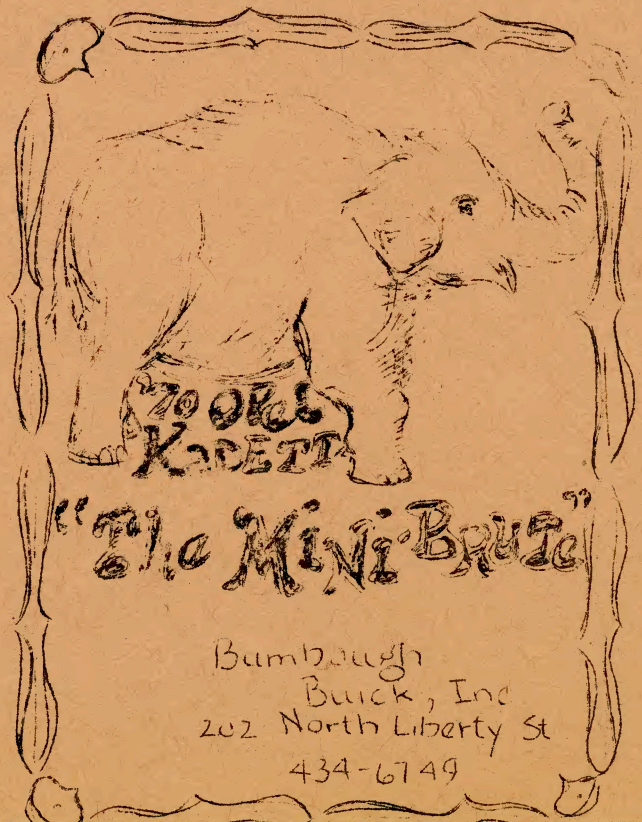 '70 OPel
KaDETT
"The MiNi-BRUTe"
Bumbaugh
Buick, Inc
202 North Liberty St
434-6749